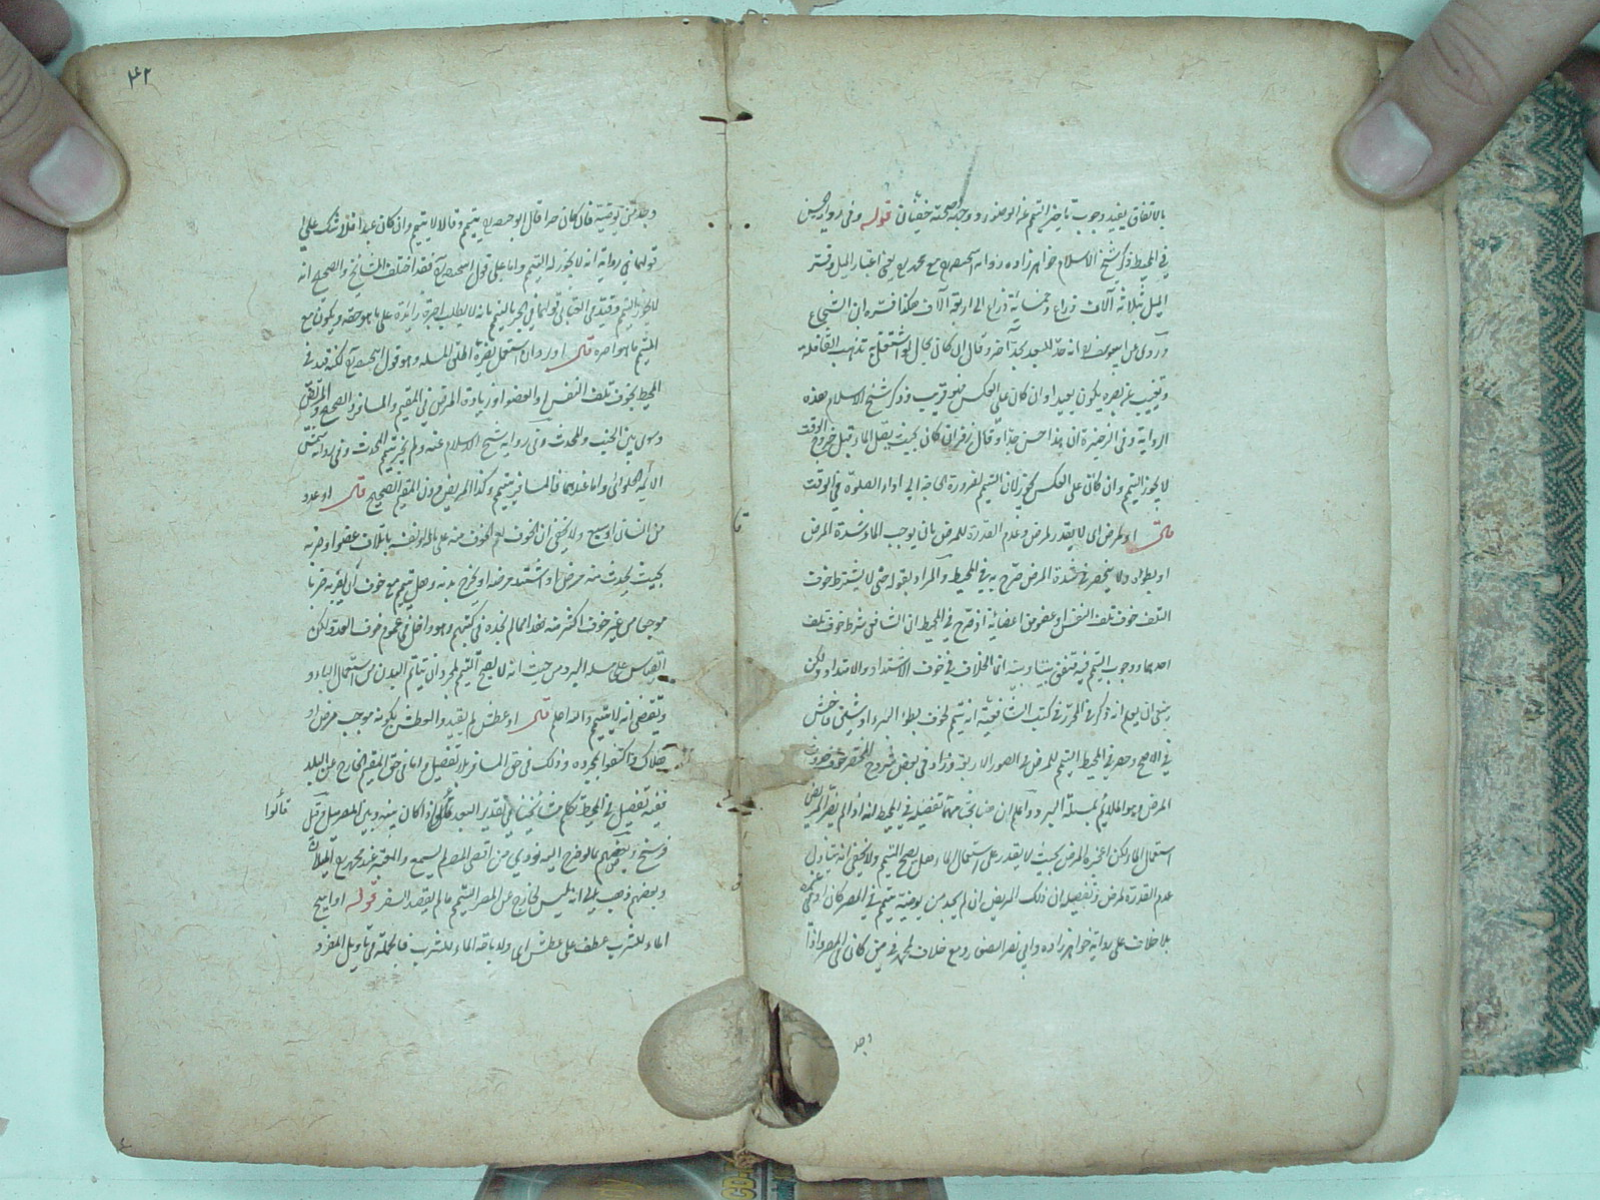 بالاتفاق يفيد وجوب تاخير التيمم عن الوضوء ووجه صحته خفيان قوله وفي رواية الحسن
في المحيط ذكر شيخ الاسلام خواهرزاده رواية الحسن مع محمد يعني اعتبار الميل وفسر
الميل بثلاثة آلاف ذراع وخمسمائة ذراع الى اربعة آلاف هكذا فسره ابن الشجاع
وروى عن ابي يوسف انه حد للبعد حدا آخر وقال ان كان بحال لو اشتغل به تذهب القافلة
وتغيب عن بصره يكون بعيدا وان كان على العكس فهو قريب وذكر شيخ الاسلام هذه
الرواية وفي الذخيرة ان هذا حسن جدا وقال زفر ان كان بحيث يصل الماء قبل خروج الوقت
لا يجوز التيمم وان كان على العكس يجوز لان التيمم لضرورة الحاجة الى اداء الصلوة في الوقت
قال او لمرض اى لا يقدر لمرض وعدم القدرة للمرض بان يوجب الماء شدة المرض
او بطؤه ولا ينحصر في شدة المرض صرح به في المحيط والمراد بقوله حتى لا يشترط خوف
التلف خوف تلف النفس او عضو من اعضائه اذ صرح في المحيط ان الشافعي شرط خوف تلف
احدهما ووجوب التيمم فيه متفق بيننا وبينه انما الخلاف في خوف الاشتداد والامتداد ولكن
ينبغي ان يعلم انه ذكر في المحرر في كتب الشافعية انه يتيمم لخوف بطؤ البرء او شين فاحش
في الاصح وحصر في المحيط التيمم للمرض في الصور الاربعة وزاد في بعض شروح المختصر خوف حدوث
المرض وهو الملائم لمسئلة البرد واعلم ان هنا بحثا مهما تفصيله في المحيط انه اذا لم يضر المريض
استعمال الماء لكن اعجزه المرض بحيث لا يقدر على استعمال الماء هل يصح التيمم ولا يخفى انه يتناول
عدم القدرة لمرض وتفصيله ان ذلك المريض ان لم يجد من يوضيه يتيمم في المصر كان او
بلا خلاف على رواية خواهرزاده وابي نصر الصفار ومع خلاف لمحمد في من كان في المصر واذا
وجد
٤٢
وجد من يوضيه فان كان حرا قال ابو حنيفة يتيمم وقالا لا يتيمم وان كان عبدا فلا شك على
قولهما في رواية انه لا يجوز له التيمم واما على قول ابي حنيفة فقد اختلف المشايخ والصحيح انه
لا يجوز التيمم وقيد في العتابي قولهما في الحر بالتيمم بانه لا يطلب اجرة زائدة على ما هو حقه ويكون مع
التيمم ما هو اجره قال او برد ان استعمل يضره اطلق المسئلة وهو قول ابي حنيفة لكنه قيد في
المحيط بخوف تلف النفس او العضو او زيادة المرض في المقيم والمسافر والصحيح والمريض
وسوى بين الجنب والمحدث وفي رواية شيخ الاسلام عنه ولم يجز تيمم المحدث وفي رواية شمس
الائمة الحلواني واما عندهما فالمسافر يتيمم وكذا المريض دون المقيم الصحيح قال او عدو
من انسان او سبع ولا يخفى ان الخوف يعم الخوف منه على ماله او نفسه باتلاف عضو او ضربه
بحيث يحدث منه مرض او اشتد مرضه او يجرح بدنه وهل يتيمم مع خوف ان يضربه ضربا
موجعا من غير خوف اكثر منه نقد احمالم نجده في كتبهم وهو داخل في عموم خوف العدو لكن
القياس على مسئلة البرد من حيث انه لا يصح التيمم لمجرد ان يتألم البدن من استعمال البارد
يقتضى انه لا يتيمم والله اعلم قال او عطش لم يقيد والعطش بكونه موجب مرض او
هلاك واكتفوا بمجرده وذلك في حق المسافر بلا تفصيل واما في حق المقيم الخارج عن البلد
ففيه تفصيل في المحيط تكلم مشايخنا في تقدير البعد قالوا اذا كان بينه وبين المصر ميل وقيل قالوا
فرسخ وبعضهم بما لو خرج اليه فنودي من اقصى المصر لم يسمع والمعتبر عند محمد الميلان
وبعضهم ذهب الى انه ليس لخارج عن المصر التيمم ما لم يقصد السفر قوله او ابيح
الماء للشرب عطف على عطش اى ولاباحة الماء للشرب فالجملة في تأويل المفرد